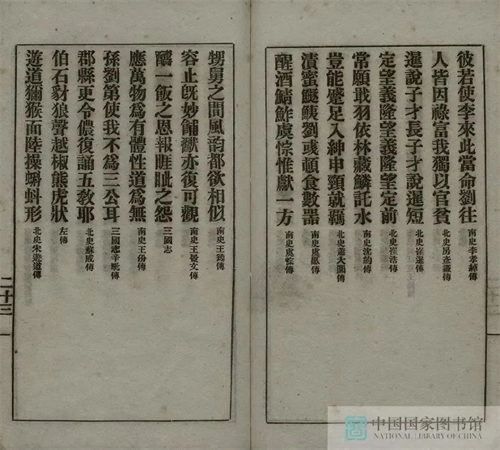 彼若使李來此當命劉往 南史李孝緯傳
人皆因祿富我獨以官貧 北史房彥謙傳
暹說子才長子才說暹短 北史崔暹傳
定望義隆望義隆望定前 北史崔浩傳
常願戢羽依林藏鱗託水 南史沈約傳
豈能蹙足入絆申頸就羈 北史蕭大圜傳
漬蜜鱁鮧劉彧頓食數器 南史虞愿傳
醒酒鯖鮓虞悰惟獻一方 南史虞悰傳
甥舅之間風韵都欲相似 南史王筠傳
容止旣妙歸獻亦復可觀 南史王晏文傳
醻一飯之恩報睚眦之怨 三國志
應萬物爲有體性道爲無 南史王份傳
孫劉第使我不爲三公耳 三國志辛毗傳
郡縣更令儂復誦五敎耶 北史蘇威傳
伯石豺狼聲越椒熊虎狀 左傳
遊道獼猴面陸操蝌蚪形 北史宋遊道傳
二十三
中国国家图书馆
NATIONAL LIBRARY OF CHINA